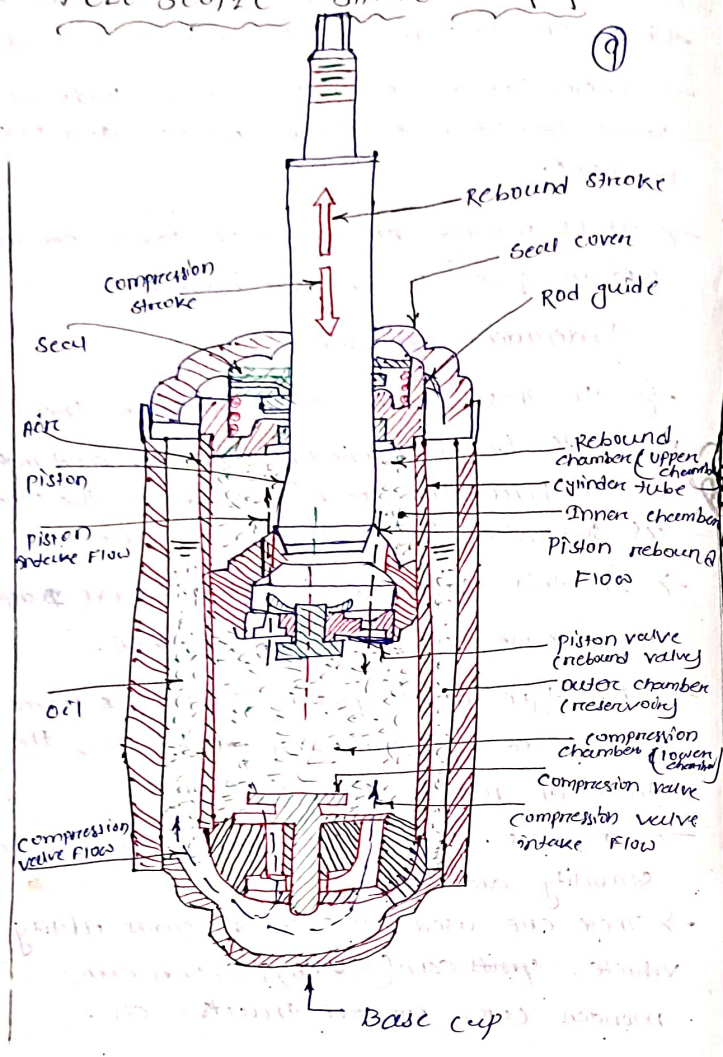 9
Rebound stroke
Seal coven
Rod guide
compression
stroke
Seal
Air
piston
piston
intake Flow
Rebound
chamber (upper
chamber
cylinder tube
Inner chamber
piston rebound
Flow
piston valve
(rebound valve)
outer chamber
(reservoir)
oil
compression
chamber (lower
chamber)
compression
valve Flow
compression valve
intake Flow
Base cup